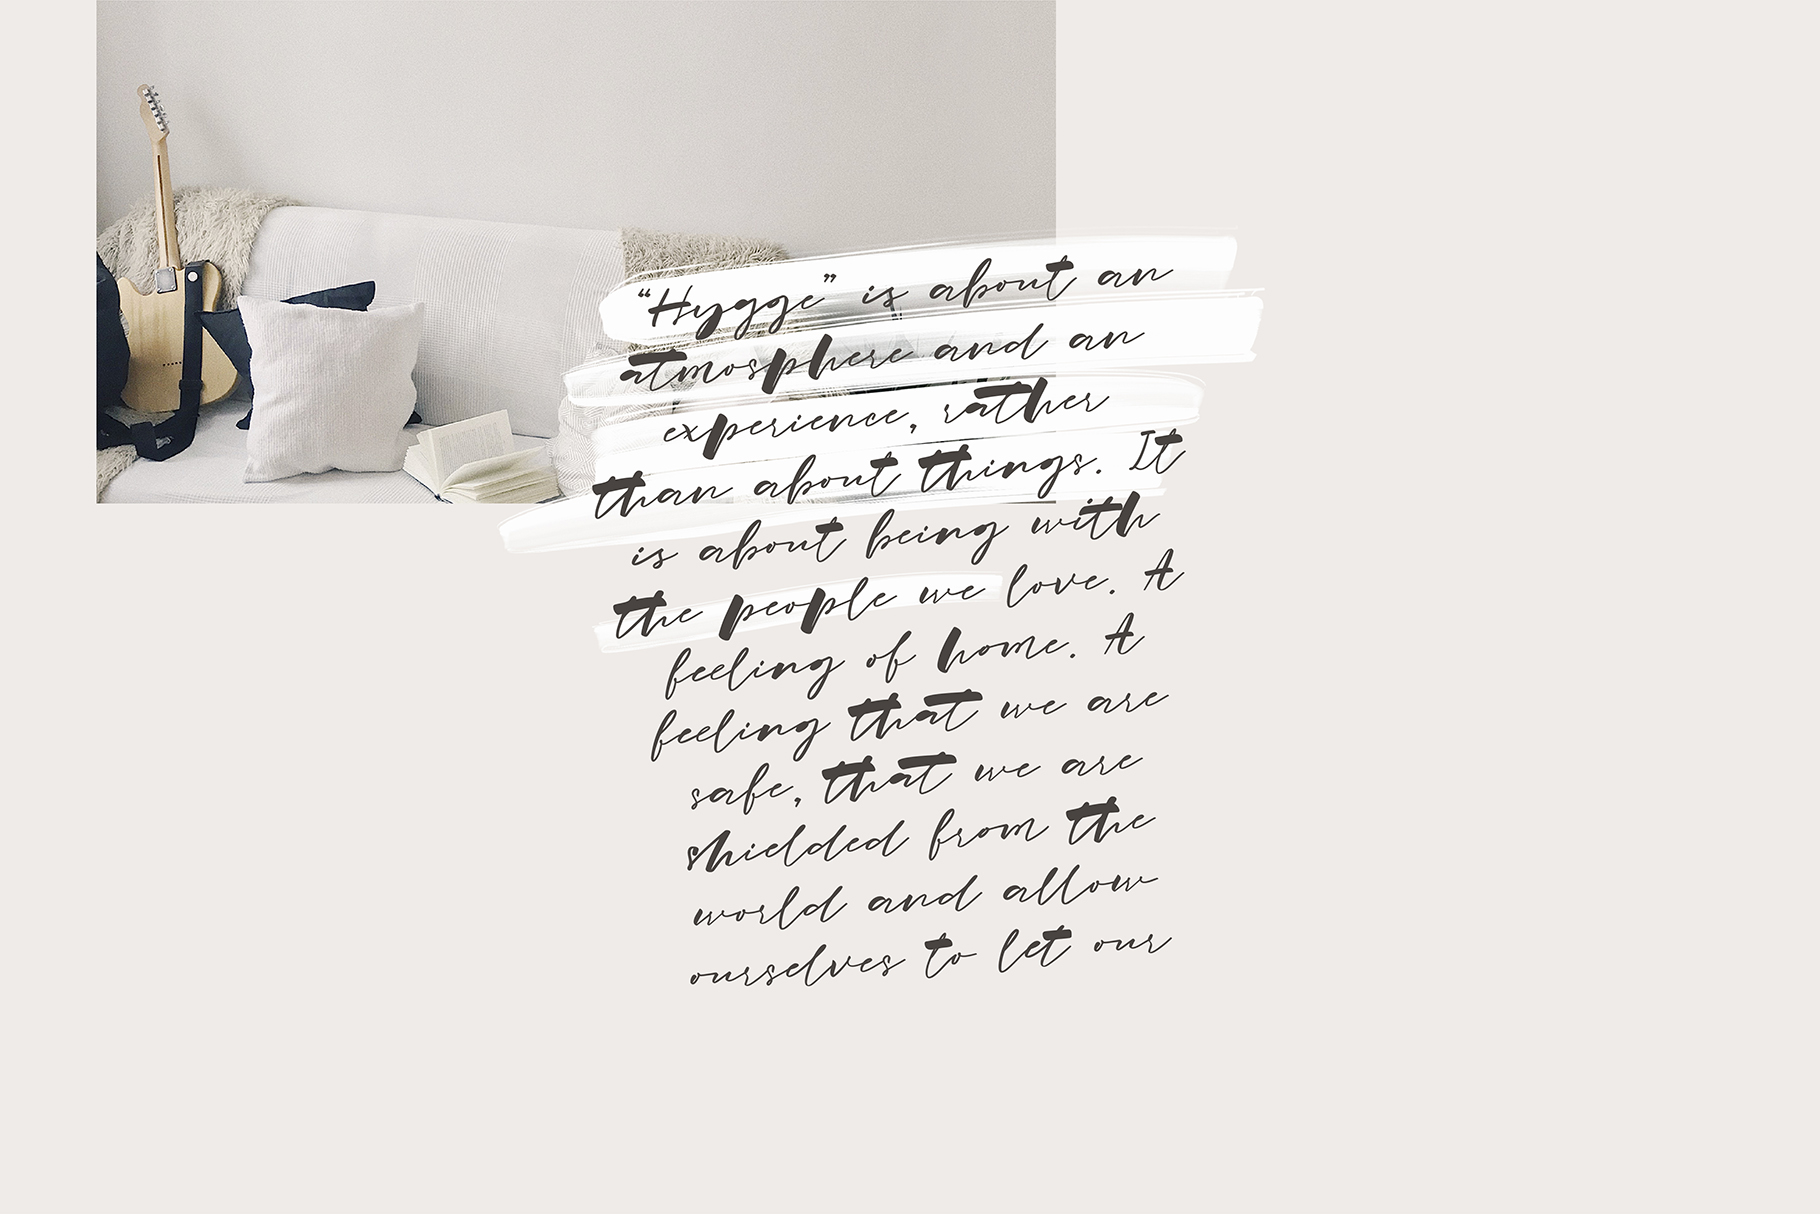 “Hygge” is about an
atmosphere and an
experience, rather
than about things. It
is about being with
the people we love. A
feeling of home. A
feeling that we are
safe, that we are
shielded from the
world and allow
ourselves to let our